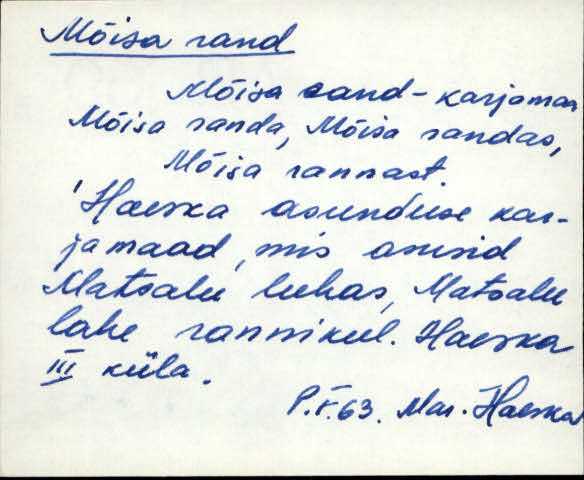 Mõisa rand
Mõisa rand - karjamaa
Mõisa randa, Mõisa randas,
Mõisa rannast.
'Haeska asunduse kar-
jamaad, mis asusid
Matsalu luhas, Matsalu
lahe rannikul. Haeska
III küla.
P.F.63. Mar. Haeska